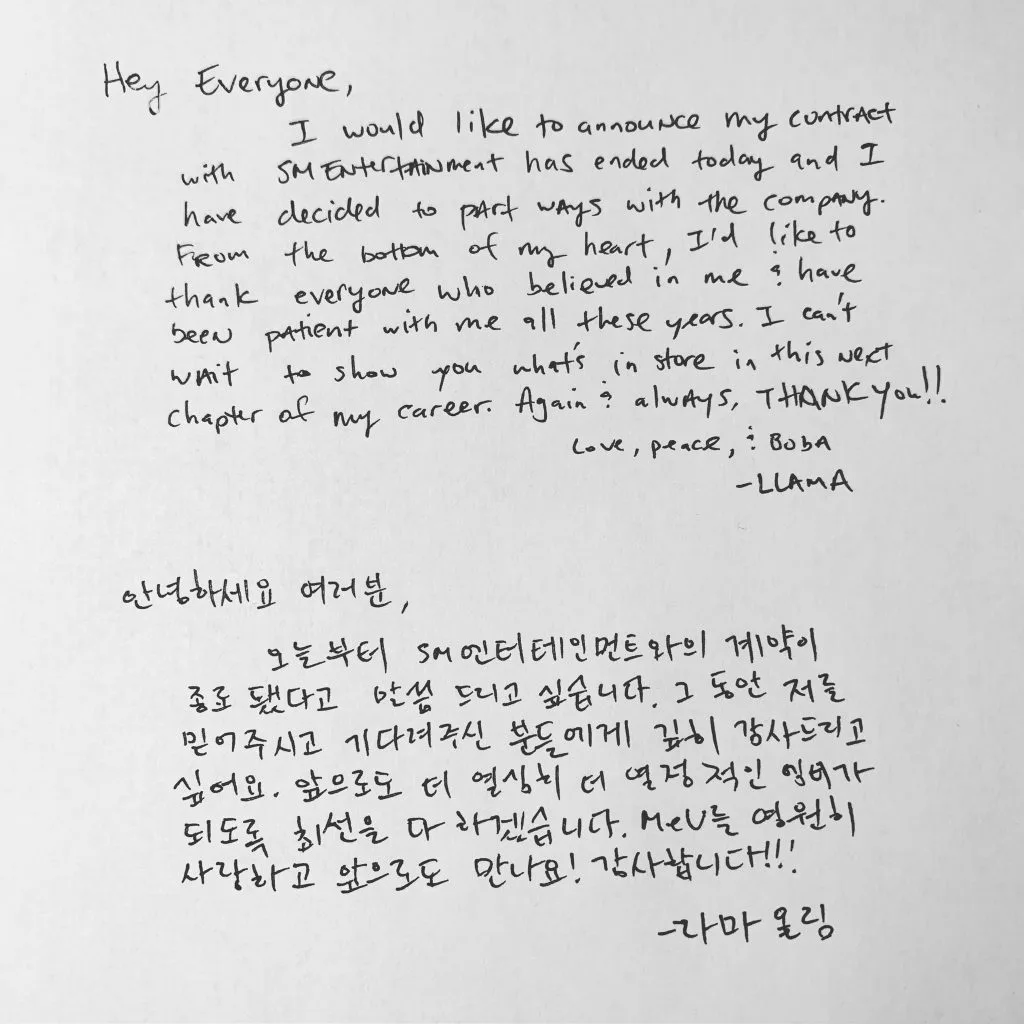 Hey Everyone,
I would like to announce my contract
with SM Entertainment has ended today and I
have decided to part ways with the company.
From the bottom of my heart, I'd like to
thank everyone who believed in me & have
been patient with me all these years. I can't
wait to show you what's in store in this next
chapter of my career. Again & always, THANK YOU!!
Love, peace, & BOBA
-LLAMA
안녕하세요 여러분,
오늘부터 SM엔터테인먼트와의 계약이
종료 됐다고 말씀 드리고 싶습니다. 그 동안 저를
믿어주시고 기다려주신 분들에게 깊히 감사드리고
싶어요. 앞으로도 더 열심히 더 열정적인 엠버가
되도록 최선을 다 하겠습니다. MeU를 영원히
사랑하고 앞으로도 만나요! 감사합니다!!!
-라마 올림